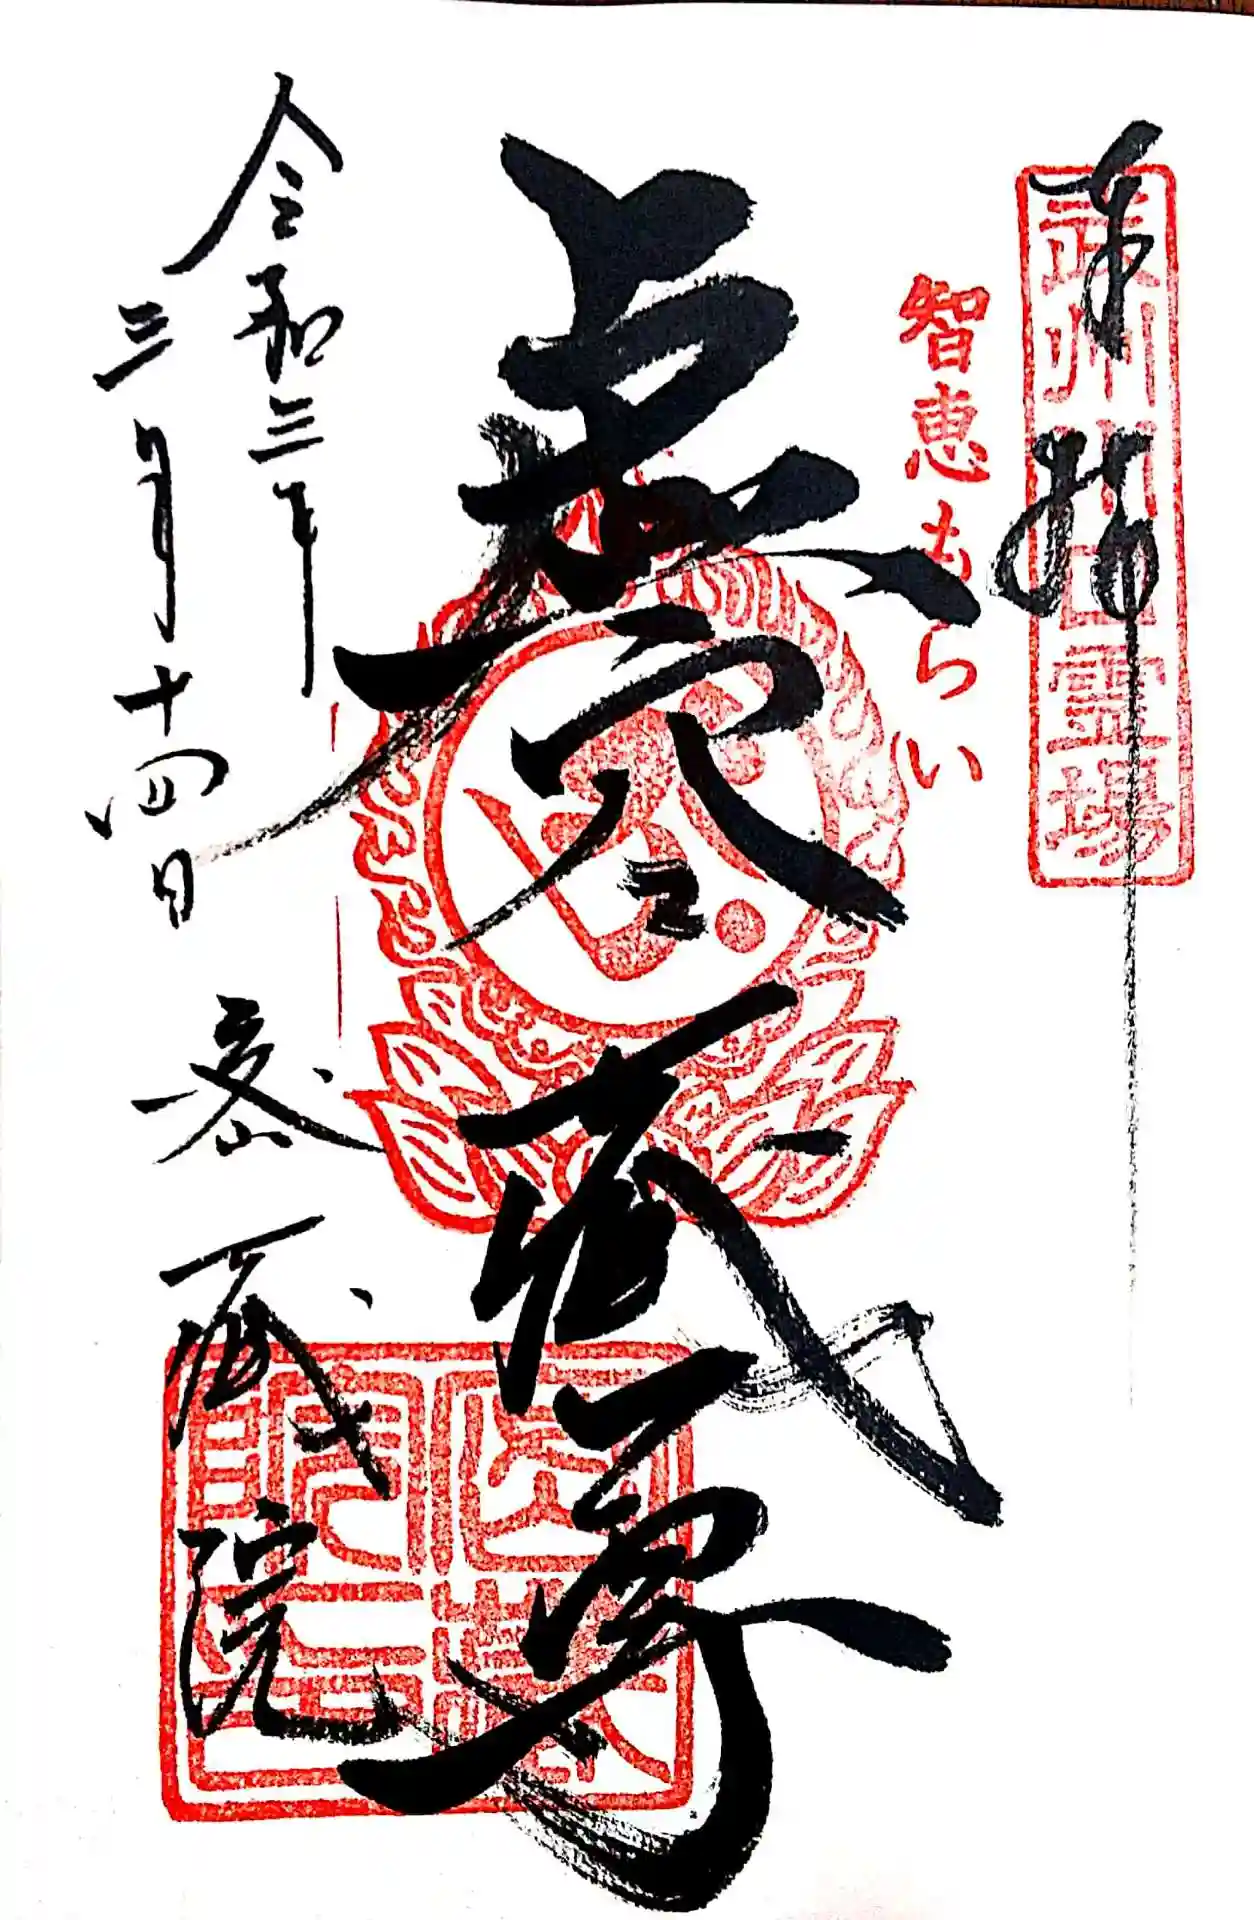 奉拝
武州川口霊場
智恵もらい
虚空蔵尊
令和三年
三月十四日
密蔵院